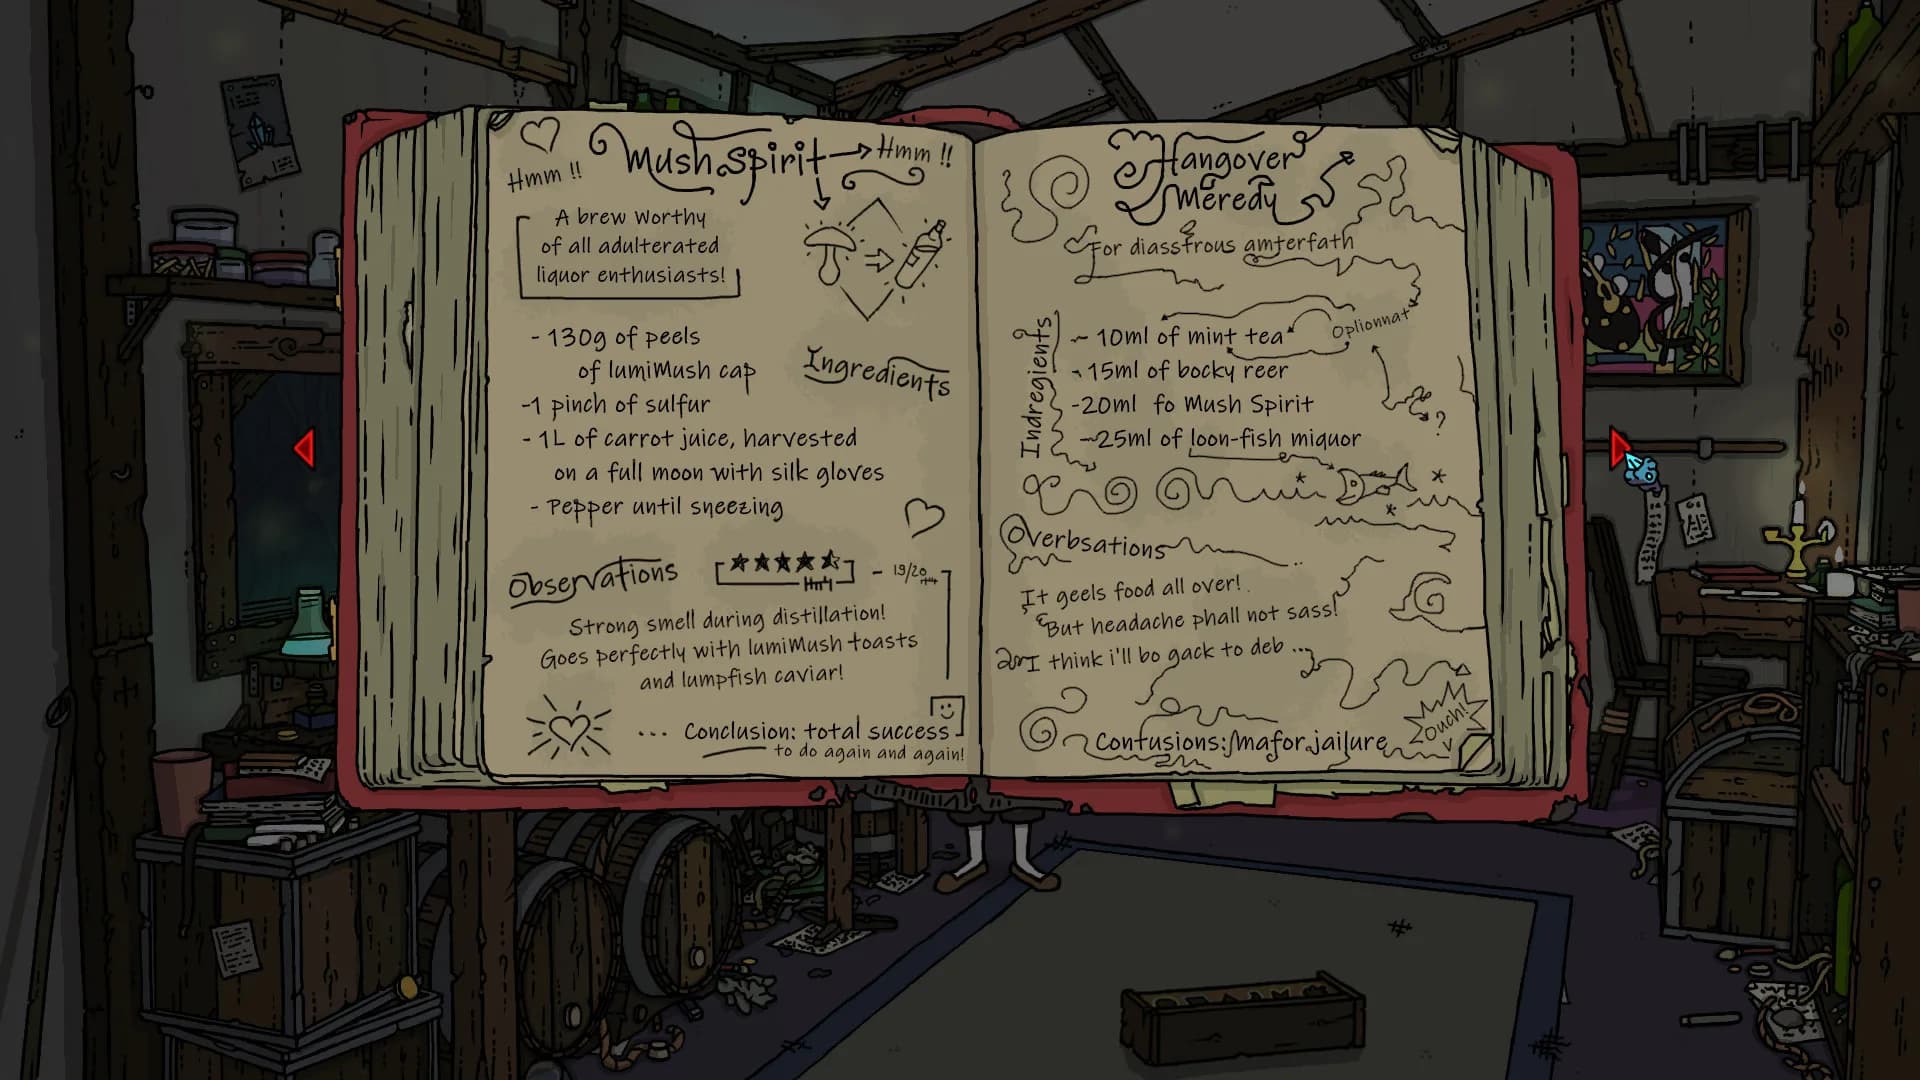 Mush Spirit
Hmm !!
Hmm !!
A brew worthy
of all adulterated
liquor enthusiasts!
Ingredients
- 130g of peels
of lumiMush cap
-1 pinch of sulfur
- 1L of carrot juice, harvested
on a full moon with silk gloves
- Pepper until sneezing
Observations
- 19/20
Strong smell during distillation!
Goes perfectly with lumiMush toasts
and lumpfish caviar!
... Conclusion: total success
to do again and again!
Hangover
Meredy
For diasstrous amterfath
Indregients
- 10ml of mint tea
Oplionnat
- 15ml of bocky reer
-20ml fo Mush Spirit
-25ml of loon-fish miquor
?
Overbsations
It geels food all over!
But headache phall not sass!
I think i'll bo gack to deb ...
Ouch!
Confusions: mafor jailure